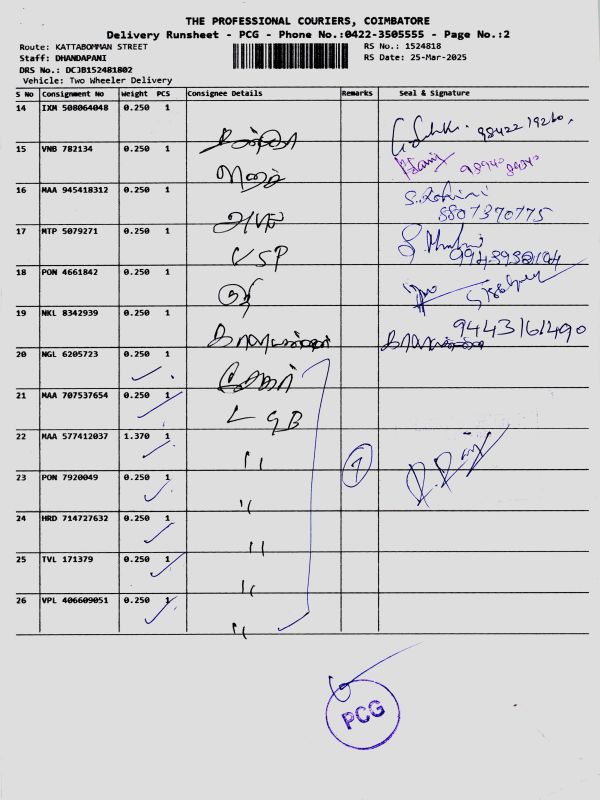 THE PROFESSIONAL COURIERS, COIMBATORE
Delivery Runsheet - PCG - Phone No.:0422-3505555 - Page No.:2
Route: KATTABOMMAN STREET
RS No.: 1524818
Staff: DHANDAPANI
RS Date: 25-Mar-2025
DRS No.: DCJB152481802
Vehicle: Two Wheeler Delivery
S No Consignment No Weight PCS Consignee Details Remarks Seal & Signature
14 IXM 508064048 0.250 1
15 VNB 782134 0.250 1
16 MAA 945418312 0.250 1
8807370775
17 MTP 5079271 0.250 1
VSP
18 PON 4661842 0.250 1
19 NKL 8342939 0.250 1
9443161490
20 NGL 6205723 0.250 1
21 MAA 707537654 0.250 1
LGB
22 MAA 577412037 1.370 1
"
7
23 PON 7920049 0.250 1
"
24 HRD 714727632 0.250 1
"
25 TVL 171379 0.250 1
"
26 VPL 406609051 0.250 1
"
PCG